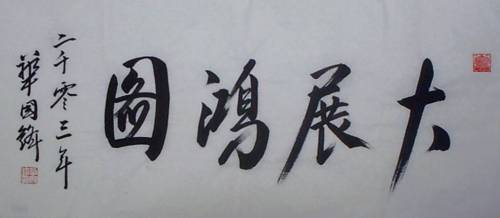 大展鴻圖
二千零三年
華国鋒